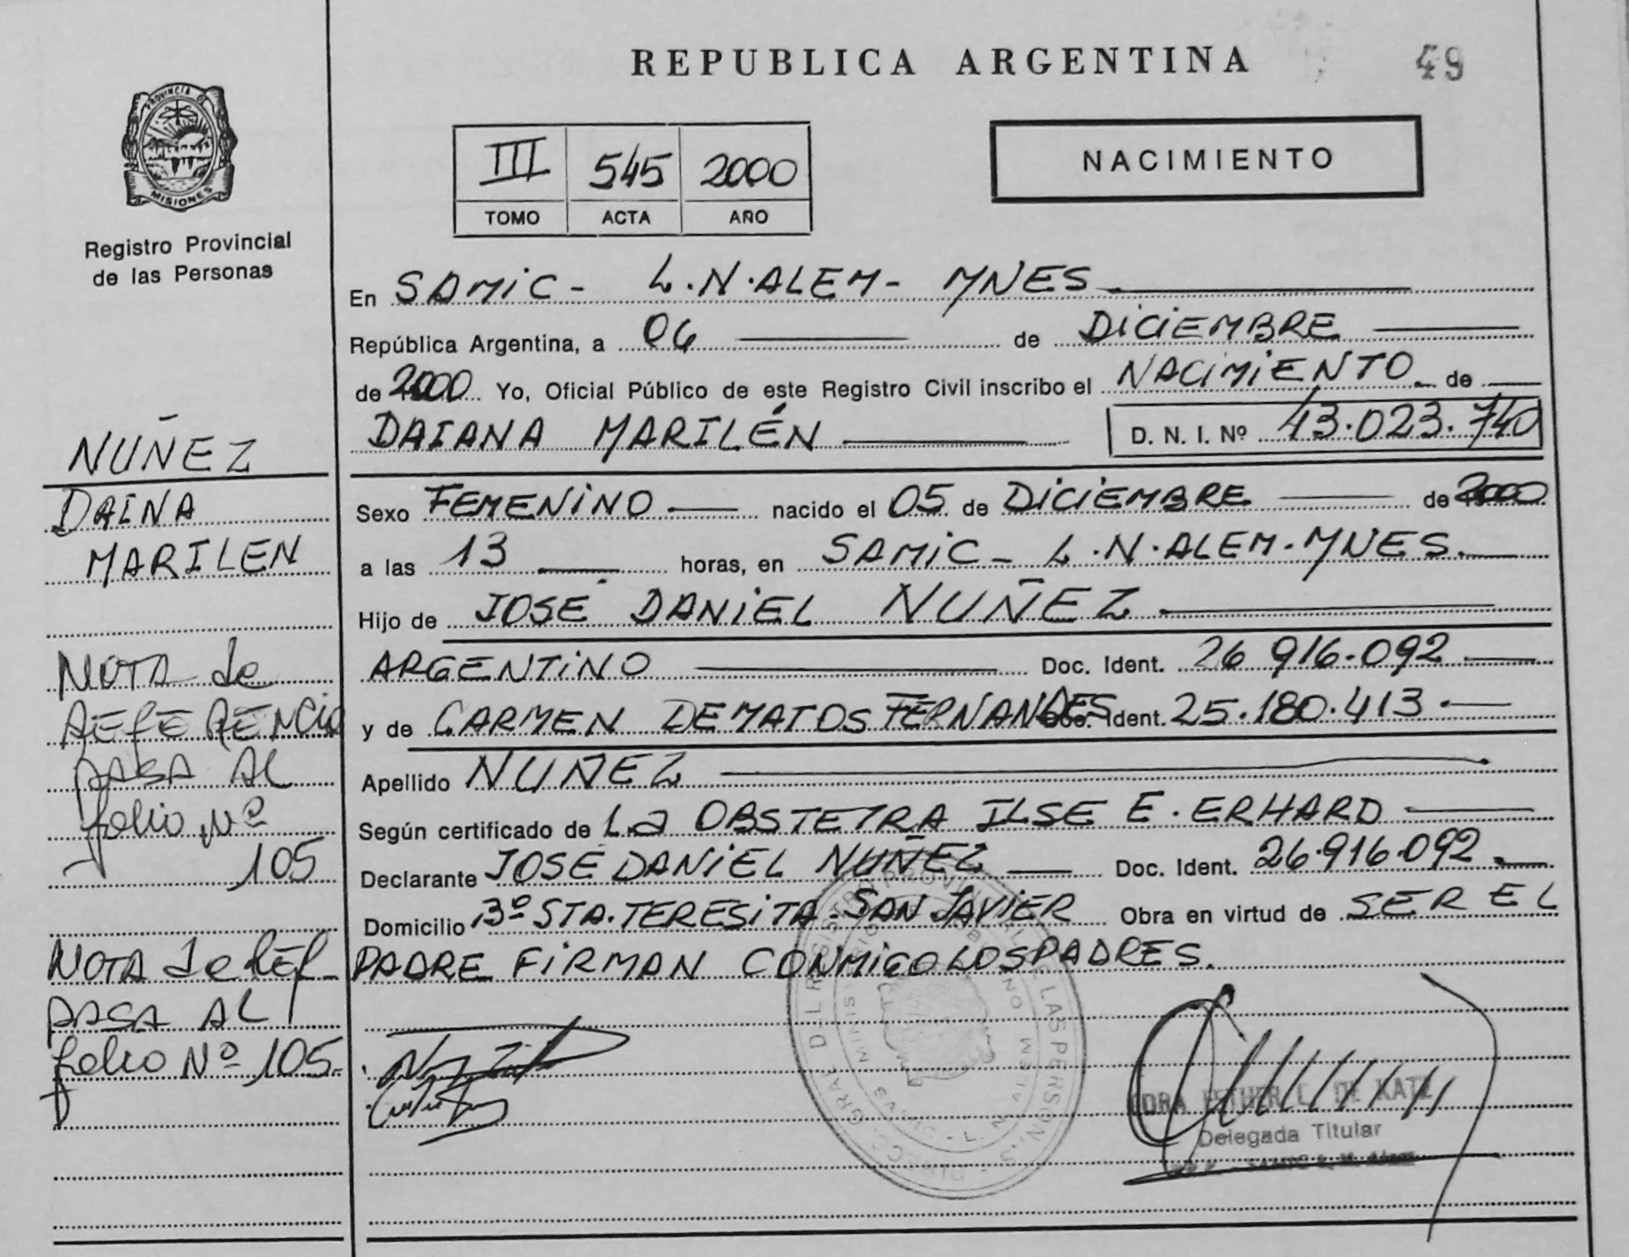 REPUBLICA ARGENTINA
49
PROVINCIA DE
MISIONES
Registro Provincial
de las Personas
III 545 2000
TOMO ACTA AÑO
NACIMIENTO
En SAMIC - L.N.ALEM - MNES
República Argentina, a 06 de DICIEMBRE
de 2000 Yo, Oficial Público de este Registro Civil inscribo el NACIMIENTO de
DAIANA MARILÉN D. N. I. Nº 43.023.740
Sexo FEMENINO nacido el 05 de DICIEMBRE de 2000
a las 13 horas, en SAMIC - L.N.ALEM - MNES.
Hijo de JOSÉ DANIEL NUÑEZ
ARGENTINO Doc. Ident. 26 916.092
y de CARMEN DEMATOS FERNANDES Doc. Ident. 25.180.413.
Apellido NUÑEZ
Según certificado de La OBSTETRA ILSE E. ERHARD
Declarante JOSÉ DANIEL NUÑEZ Doc. Ident. 26.916.092.
Domicilio Bº STA. TERESITA - SAN JAVIER Obra en virtud de SER EL
PADRE FIRMAN CONMIGO LOS PADRES.
NUÑEZ
DAINA
MARILEN
NOTA de
REFERENCIA
PASA AL
folio Nº
105
NOTA de REF
PASA AL
folio Nº 105.
ESTHER L. DE KATZ
Delegada Titular